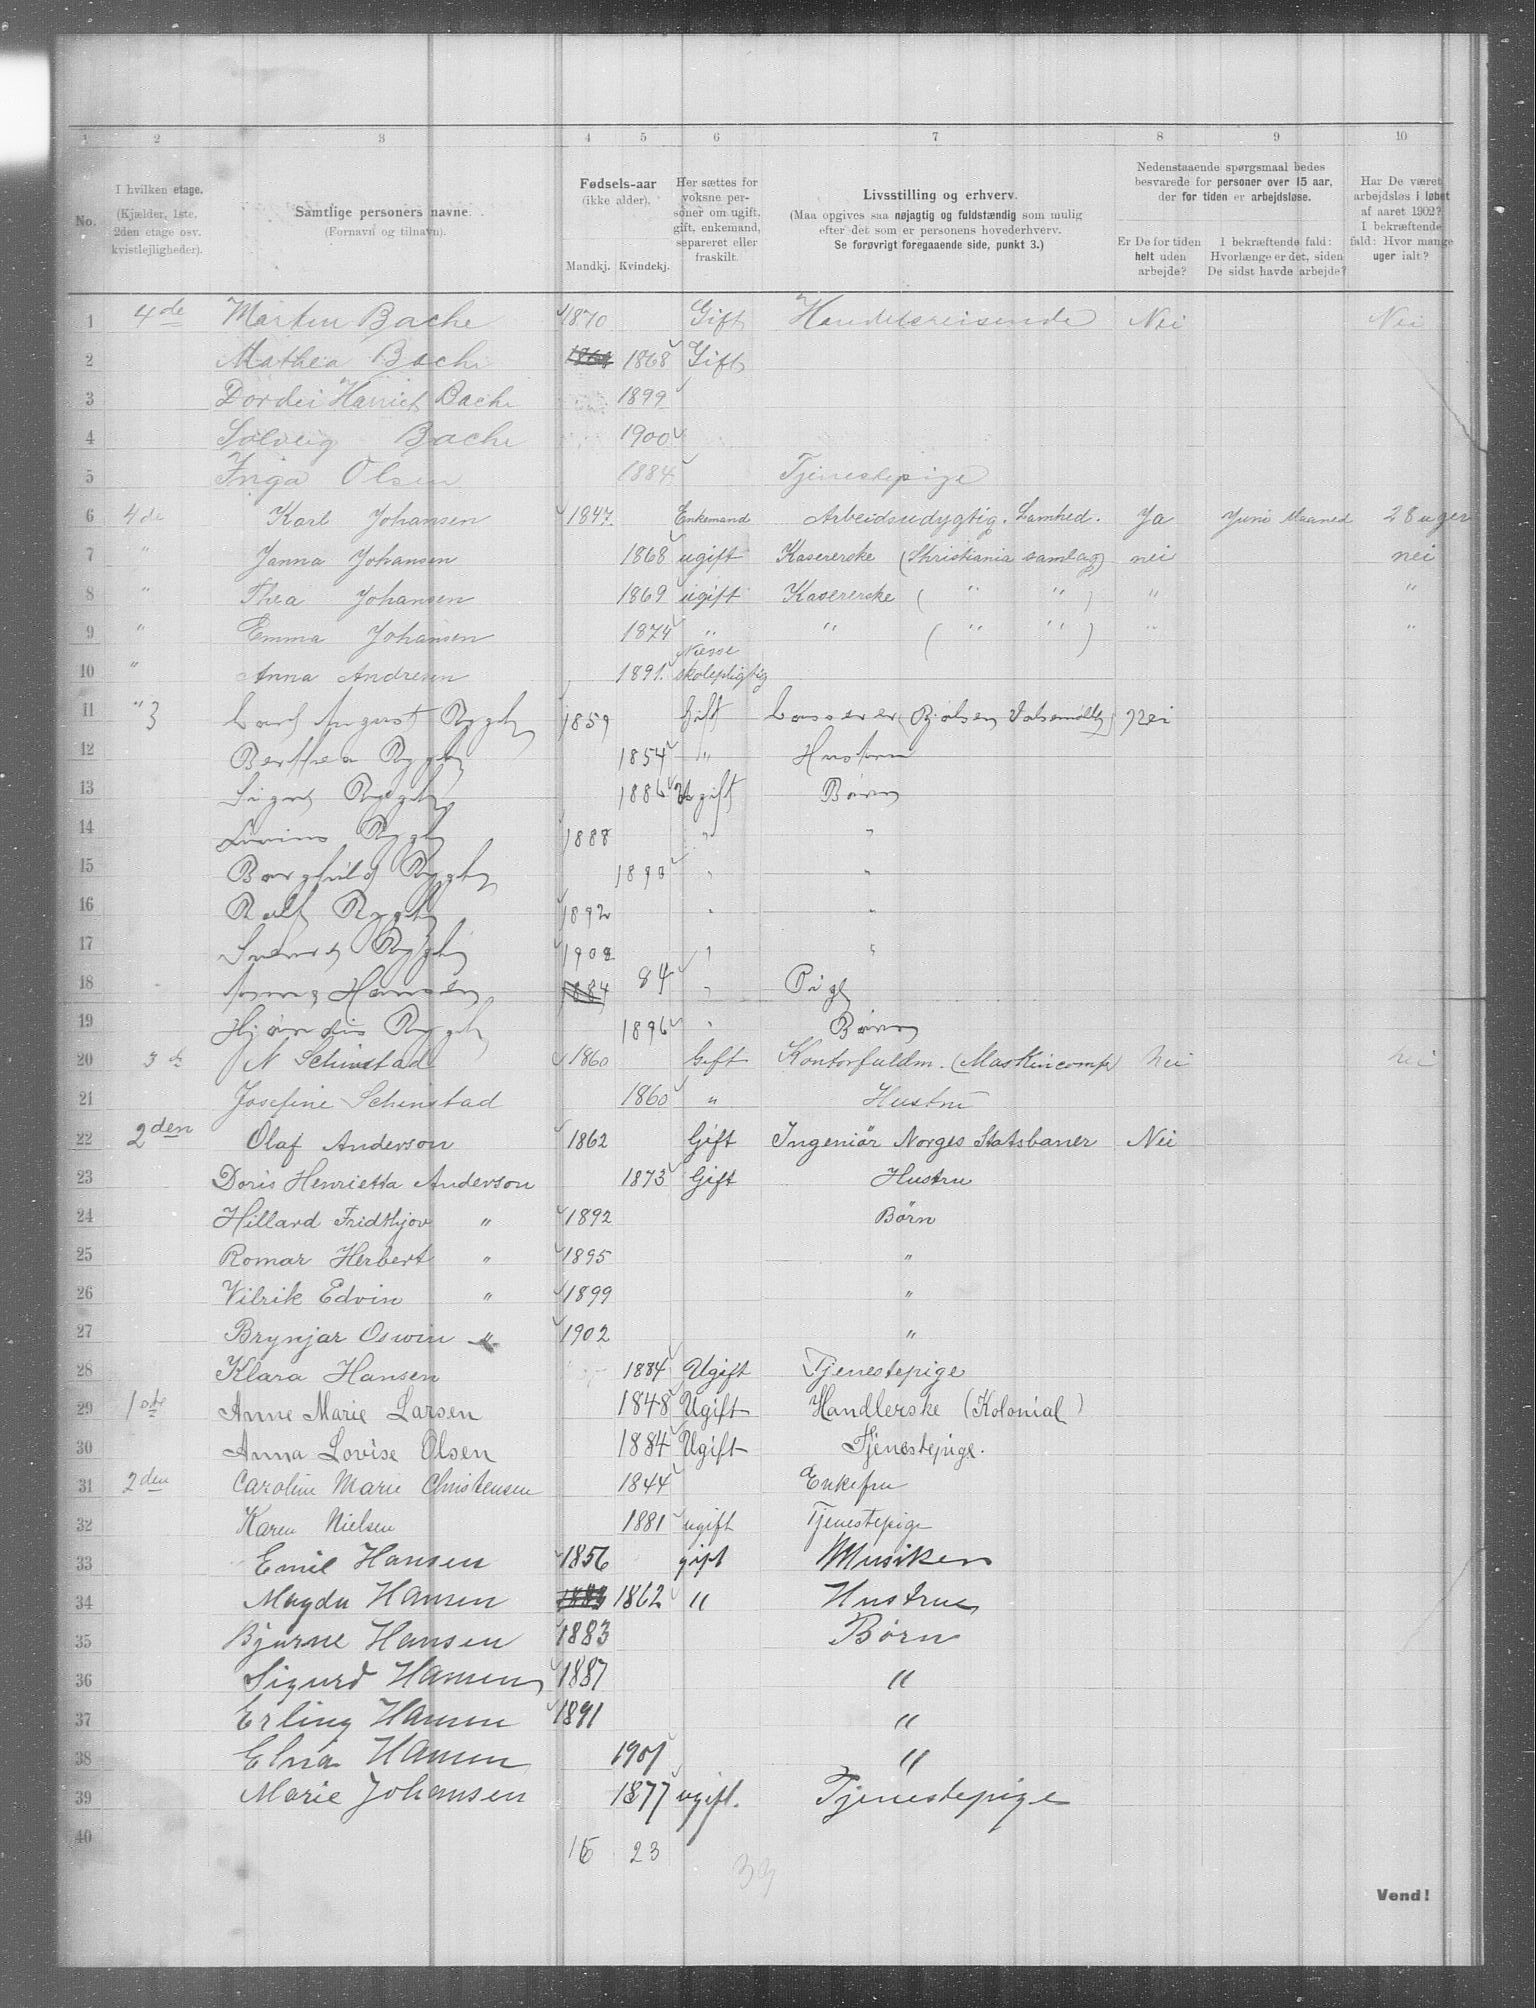 1 2 3 4 5 6 7 8 9 10
No. I hvilken etage. (Kjælder, 1ste, 2den etage osv. kvistlejligheder). Samtlige personers navne. (Fornavn og tilnavn). Fødsels-aar (ikke alder). Mandkj. Kvindekj. Her sættes for voksne personer om ugift, gift, enkemand, separeret eller fraskilt. Livsstilling og erhverv. (Maa opgives saa nøjagtig og fuldstændig som mulig efter det som er personens hovederhverv. Se forøvrigt foregaaende side, punkt 3.) Nedenstaaende spørgsmaal bedes besvarede for personer over 15 aar, der for tiden er arbejdsløse. Er De for tiden helt uden arbejde? I bekræftende fald: Hvorlænge er det, siden De sidst havde arbejde? Har De været arbejdsløs i løbet af aaret 1902? I bekræftende fald: Hvor mange uger ialt?
1 4de Martin Bache 1870 Gift Handelsreisende Nei Nei
2 Mathea Bache 1868 Gift
3 Dordei Harriet Bache 1899
4 Solveig Bache 1900
5 Inga Olsen 1884 Tjenestepige
6 4de Karl Johansen 1847 Enkemand Arbeidsudygtig. Ja Juni Maaned 28 uger
7 " Janna Johansen 1868 ugift Kasererske (Christiania samlag) nei nei
8 " Thea Johansen 1869 ugift Kasererske ( " " ) " "
9 " Emma Johansen 1874 " " ( " " ) " "
10 " Anna Andresen 1891. Niesse skolepligtig
11 " 3 August Rygh 1859 Gift (Bjølsen Valsemølle) Nei
12 Berthea Rygh 1854 " Hustru
13 Signe Rygh 1886 Ugift Børn
14 Rygh 1888 " "
15 Borghild Rygh 1890 " "
16 Rolf Rygh 1892 " "
17 Sverre Rygh 1902 " "
18 Hansen 1884 84 " Pige
19 Hjørdis Rygh 1896 " Børn
20 3de N Schinstad 1860 Gift Kontorfuldm. (Maskincomp) nei nei
21 Josefine Schinstad 1860 " Hustru
22 2den Olaf Anderson 1862 Gift Ingeniør Norges Statsbaner Nei
23 Doris Henrietta Anderson 1873 Gift Hustru
24 Hillard Fridthjov " 1892 Børn
25 Romar Herbert " 1895 "
26 Vilrik Edvin " 1899 "
27 Brynjar Oswin " 1902 "
28 Klara Hansen 1884 Ugift Tjenestepige
29 1ste Anne Marie Larsen 1848 Ugift Handlerske (Kolonial)
30 Anna Lovise Olsen 1884 Ugift Tjenestepige.
31 2den Caroline Marie Christensen 1844 Enkefru
32 Karen Nielsen 1881 ugift Tjenestepige
33 Emil Hansen 1856 gift Musiker
34 Magda Hansen 1862 " Hustrue
35 Bjarne Hansen 1883 Børn
36 Sigurd Hansen 1887 "
37 Erling Hansen 1891 "
38 Elna Hansen 1901 "
39 Marie Johansen 1877 ugift. Tjenestepige
40
16 23
39
Vend!